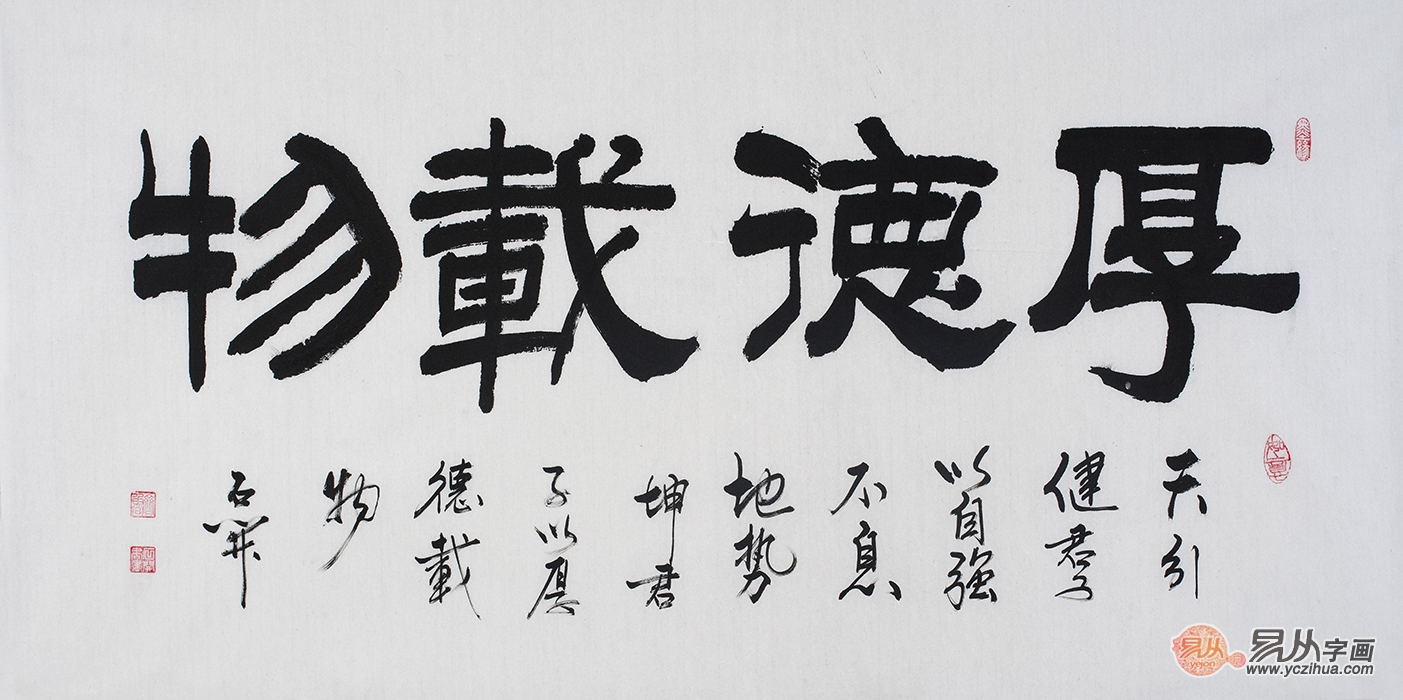 厚德載物
天行
健君子
以自強
不息
地势
坤君
子以厚
德載
物
石開
易从字画
www.yczihua.com
yicon